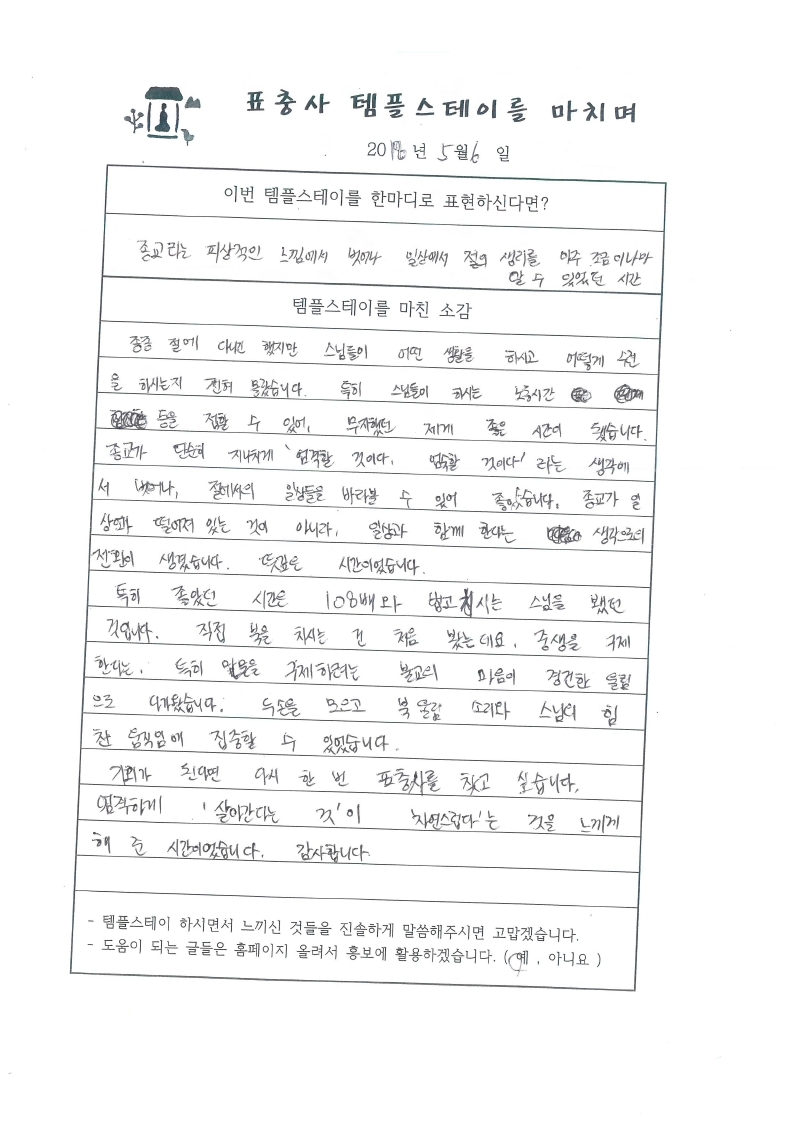 표충사 템플스테이를 마치며
2018년 5월 6일
이번 템플스테이를 한마디로 표현하신다면?
종교라는 피상적인 느낌에서 벗어나 일상에서 절의 생리를 아주 조금이나마
알 수 있었던 시간
템플스테이를 마친 소감
종종 절에 다니긴 했지만 스님들이 어떤 생활을 하시고 어떻게 수련
을 하시는지 전혀 몰랐습니다. 특히 스님들이 하시는
등을 접할 수 있어, 무지했던 제게 좋은 시간이 됐습니다.
종교가 단순히 지나치게 '엄격할 것이다, 엄숙할 것이다' 라는 생각에
서 벗어나, 절에서의 일상들을 바라볼 수 있어 좋았습니다. 종교가 일
상과 떨어져 있는 것이 아니라, 일상과 함께 한다는 생각으로의
전환이 생겼습니다. 뜻깊은 시간이었습니다.
특히 좋았던 시간은 108배와 법고 치시는 스님을 뵀던
것입니다. 직접 북을 치시는 건 처음 봤는데요, 중생을 구제
한다는, 특히 구제하려는 불교의 마음이 경건한 울림
으로 다가왔습니다. 두손을 모으고 북 울림 소리와 스님의 힘
찬 움직임에 집중할 수 있었습니다.
기회가 된다면 다시 한 번 표충사를 찾고 싶습니다.
엄격하게 '살아간다는 것'이 '자연스럽다'는 것을 느끼게
해 준 시간이었습니다. 감사합니다.
- 템플스테이 하시면서 느끼신 것들을 진솔하게 말씀해주시면 고맙겠습니다.
- 도움이 되는 글들은 홈페이지 올려서 홍보에 활용하겠습니다. ( 예 , 아니요 )